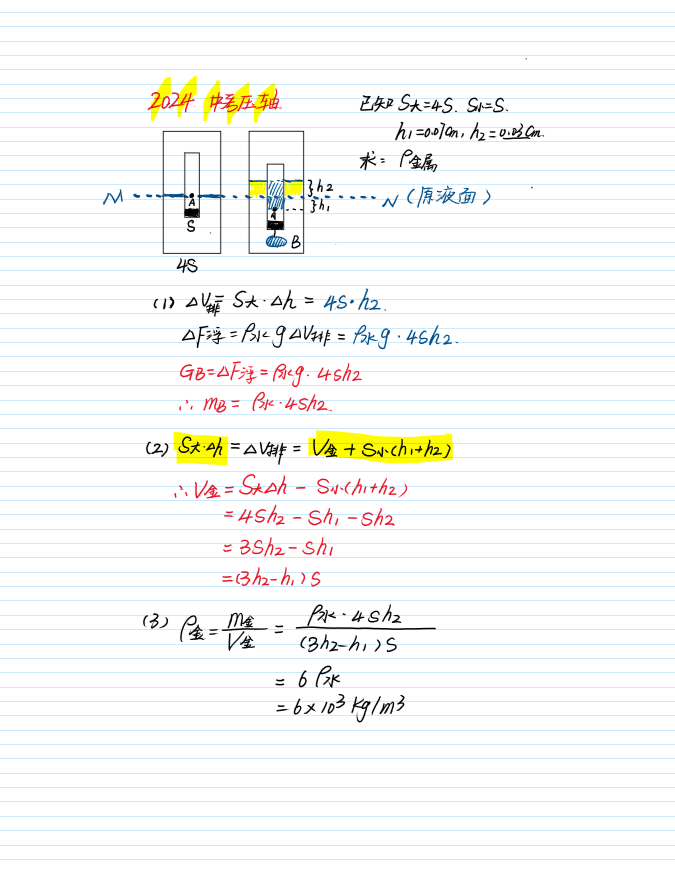 2024 中考压轴
已知 S大=4S. S小=S.
h1=0.07cm, h2=0.03cm.
求: ρ金属
M
N (原液面)
A
S
4S
h2
h1
A
B
(1) ΔV排 = S大·Δh = 4S·h2.
ΔF浮 = ρ水 g ΔV排 = ρ水g·4Sh2.
GB=ΔF浮=ρ水g·4Sh2
∴ mB = ρ水·4Sh2.
(2) S大·Δh = ΔV排 = V金 + S小(h1+h2)
∴ V金 = S大Δh - S小(h1+h2)
= 4Sh2 - Sh1 - Sh2
= 3Sh2 - Sh1
=(3h2-h1)S
(3) ρ金 = m金/V金 = ρ水·4Sh2/(3h2-h1)S
= 6ρ水
= 6×10³ kg/m³